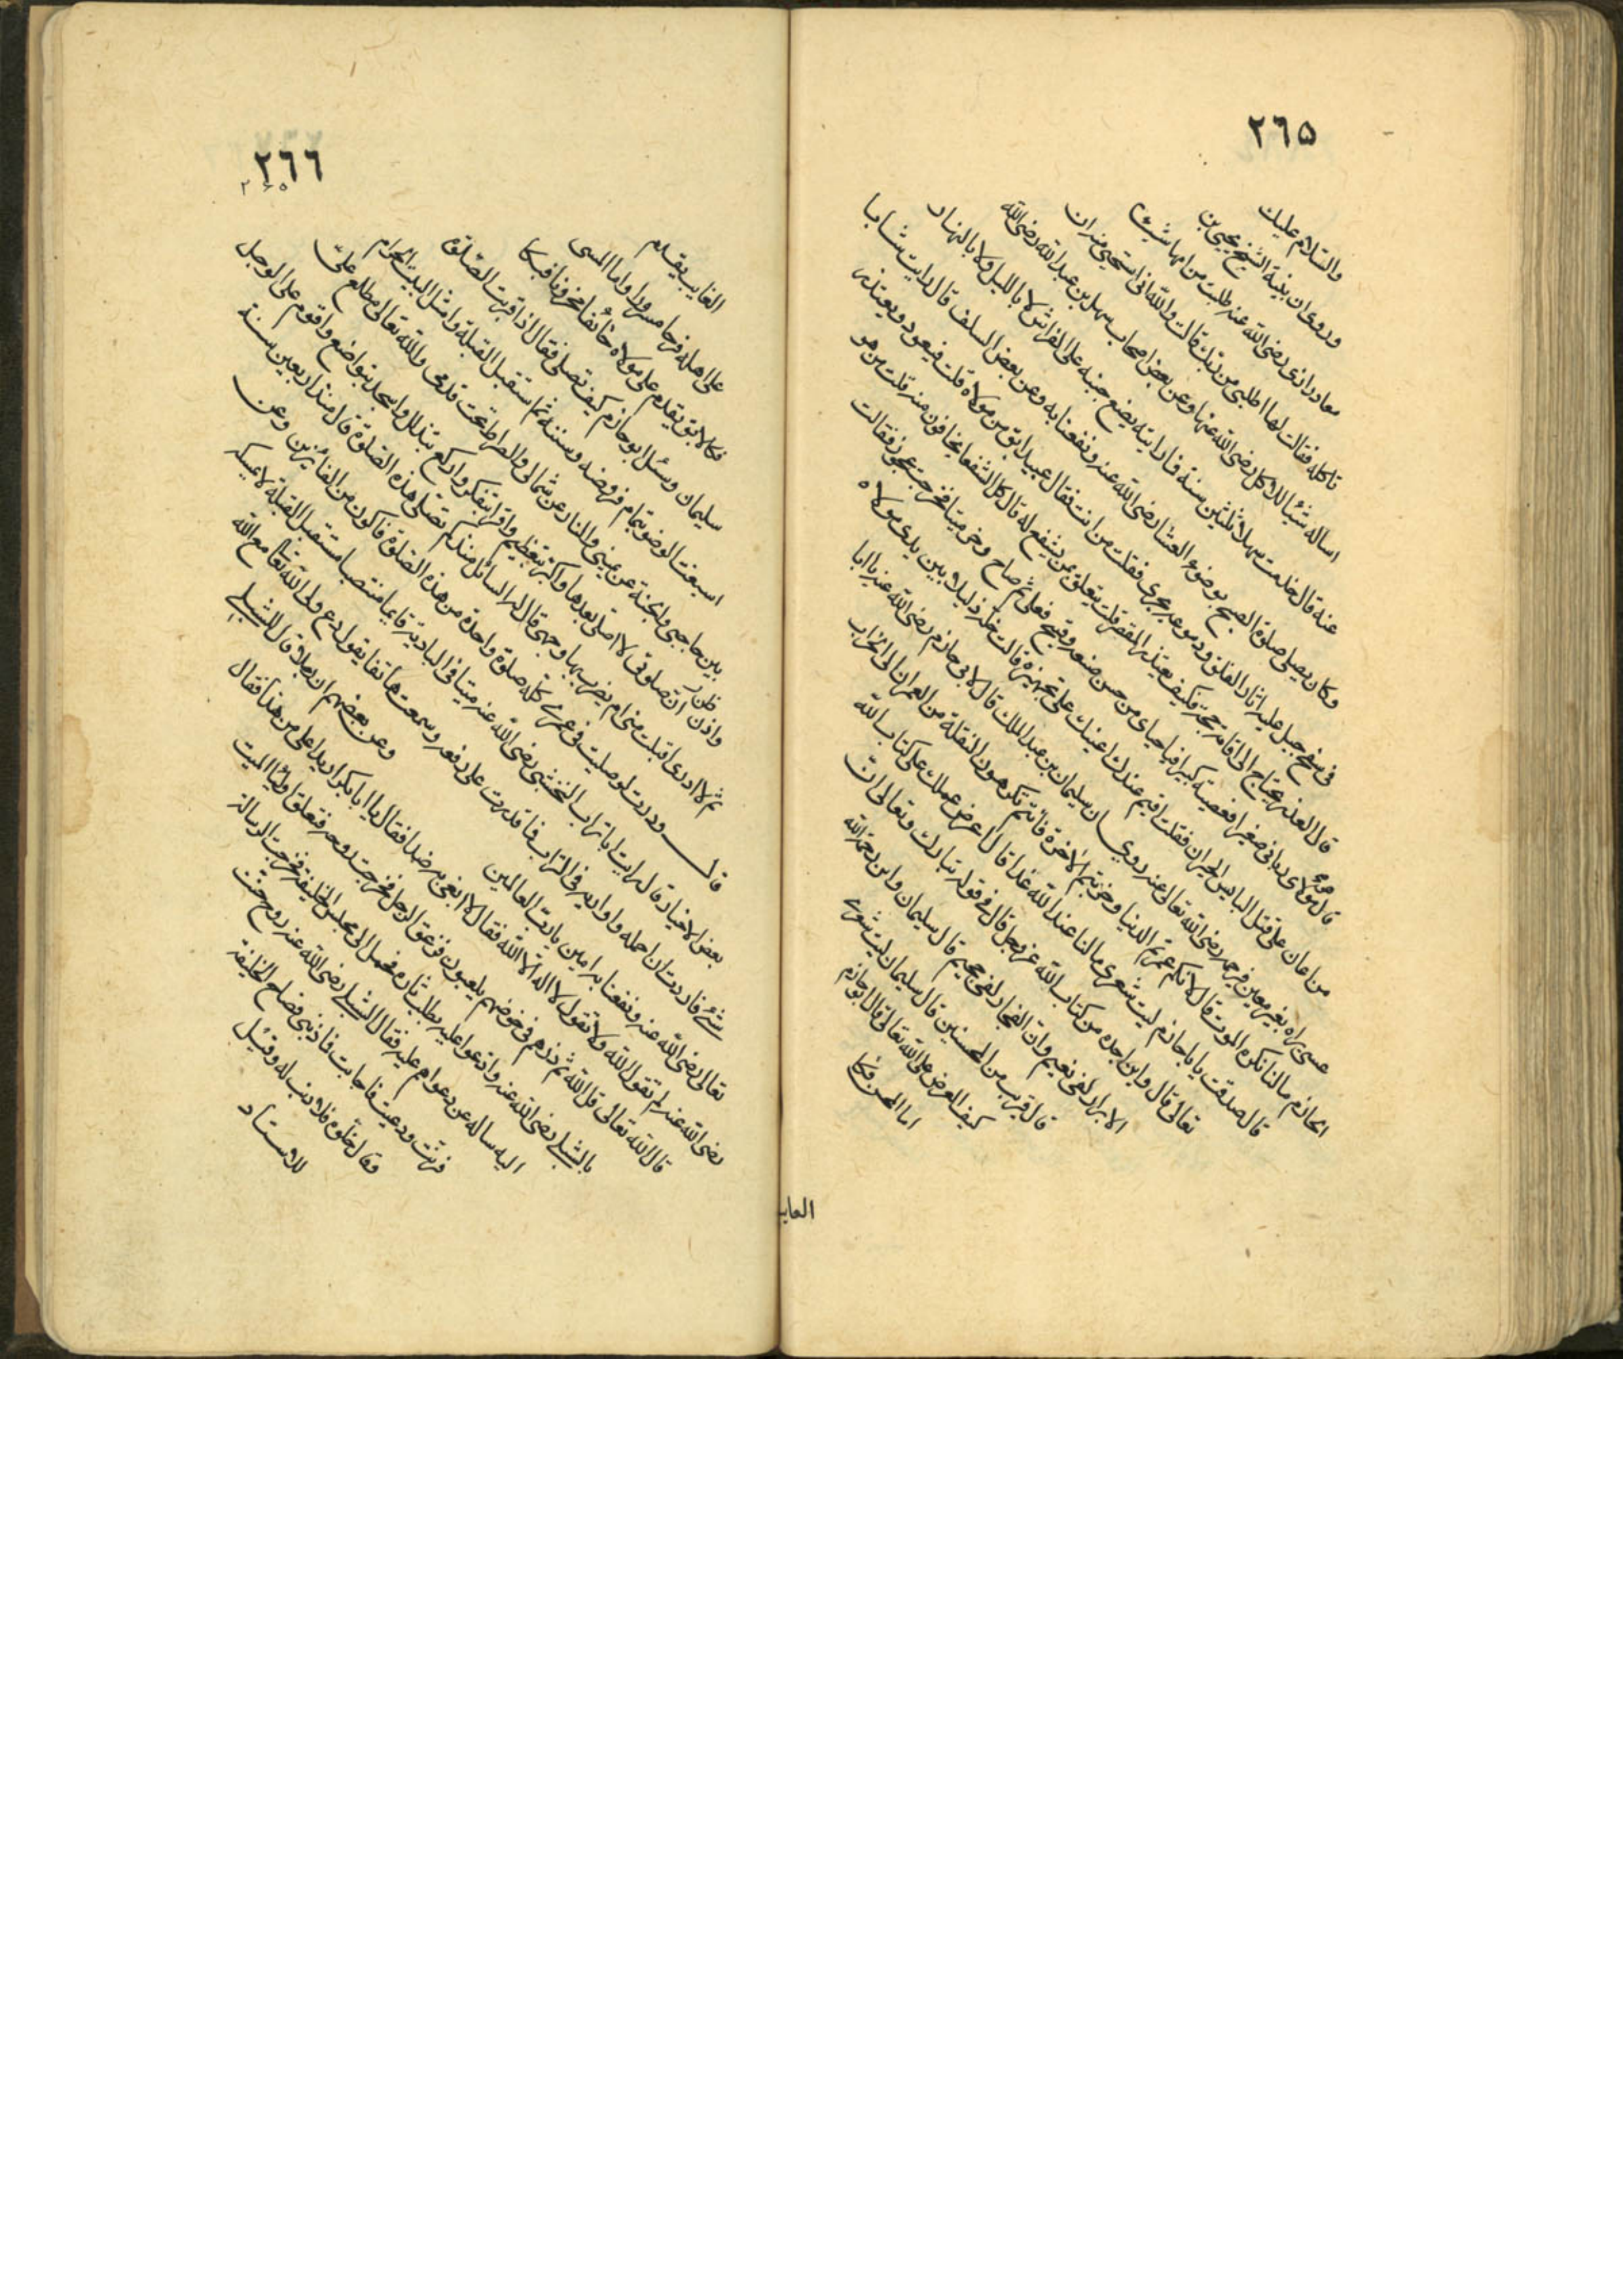 ٢٦٥
والسلام عليك
وروى ان بنية الشيخ يحيى بن
معاد رازى رضى الله عنه طلبت من امها شيئا
تاكله فقالت لها اطلبى من ربك قالت والله انى استحيى منه ان
اساله شيئا للاكل رضى الله عنها وعن بعض اصحاب سهل بن عبد الله رضى الله
عنه قال خدمت سهلا ثلثين سنة فما رايته يضع جنبه على الفراش لا بالليل ولا بالنهار
وكان يصلى صلوة الصبح بوضوء العشا رضى الله عنه ونفعنا به وعن بعض السلف قال رايت شابا
فى سفح جبل عليه اثار القلق ودموعه تجرى فقلت من انت فقال عبد ابق من مولاه قلت فيعود ويعتذر
قال العذر يحتاج الى اقامة حجة فكيف يعتذر المقصر قلت يتعلق بمن يشفع له قال كل الشفعا يخافون منه قلت من هو
قال مولاى ربانى صغيرا فعصيته كبيرا فيا حياى من حسن صنعه وقبح فعلى ثم صاح وخر ميتا فخرجت عجوز فقالت
من اعان على قتل البايس الحيران فقلت اقيم عندك اعينك على تجهيزه قالت خله ذليلا بين يدى مولاه
عسى يراه بغير معين فيرحمه رضى الله تعالى عنه روى ان سليمان بن عبد الملك قال لابى حازم رضى الله عنه يا ابا
الحازم مالنا نكره الموت قال لانكم عمرتم الدنيا وخربتم الاخرة فانتم تكرهون النقلة من العمران الى الخراب
قال صدقت يا باحازم ليت شعرى مالنا عند الله غدا قال اعرض عملك على كتاب الله
تعالى قال واين اجده من كتاب الله عز وجل قال فى قوله تبارك وتعالى ان
الابرار لفى نعيم وان الفجار لفى جحيم قال سليمان واين رحمة الله
قال قريب من المحسنين قال سليمان ليت شعرى
كيف العرض على الله تعالى قال ابوحازم
اما المحسن فكا
الغايب
٢٦٦
الغايب يقدم
على اهله فرحا مسرورا واما المسى
فكالابق يقدم على مولاه خائفا محزونا فبكا
سليمان وسئل ابوحازم كيف تصلى فقال اذا قربت الصلوة
اسبغت الوضو بتمام فروضه وسننه ثم استقبل القبلة وامثل البيت الحرام
بين حاجبى والجنة عن يمينى والنار عن شمالى والصراط تحت قدمى والله تعالى مطلع على
واظن ان صلوتى لا اصلى بعدها واكبر بتعظيم واقرا بتفكر واركع بتذلل واسجد بتواضع واقوم على الوجل
ثم لا ادرى اقبلت منى ام يضرب بها وجهى قال له السائل منذ كم تصلى هذه الصلوة قال منذ اربعين سنة
قال وددت لو صليت فى عمرى كله صلوة واحدة من هذه الصلوة فاكون من الفائزين وعن
بعض الاخيار قال رايت اباتراب النخشبى رضى الله عنه ميتا فى البادية قايما منتصبا مستقبل القبلة لا يمسكه
شئ فاردت ان احمله واواريه فى التراب فما قدرت على رفعه وسمعت هاتفا يقول دع ولى الله تعالى مع الله
تعالى رضى الله عنه ونفعنا به امين يا رب العالمين وعن بعضهم ان رجلا قال للشبلى
رضى الله عنه لم تقول الله ولا تقول لا اله الا الله فقال لا انفى به ضدا فقال يا ابا بكر اريد اعلى من هذا فقال
قال الله تعالى قل الله ثم ذرهم فى خوضهم يلعبون فزعق الرجل فخرجت روحه فتعلق اولياء الميت
بالشبلى رضى الله عنه وادعوا عليه بطلب ثاره فحمل الى مجلس الخليفة فخرجت الرسالة
اليه ساله عن دعواهم عليه فقال الشبلى رضى الله عنه روح حنت
فرنت ودعيت فاجابت فما ذنبى فصاح الخليفة
وقال خلوه فلا ذنب له وقيل
للاستاد